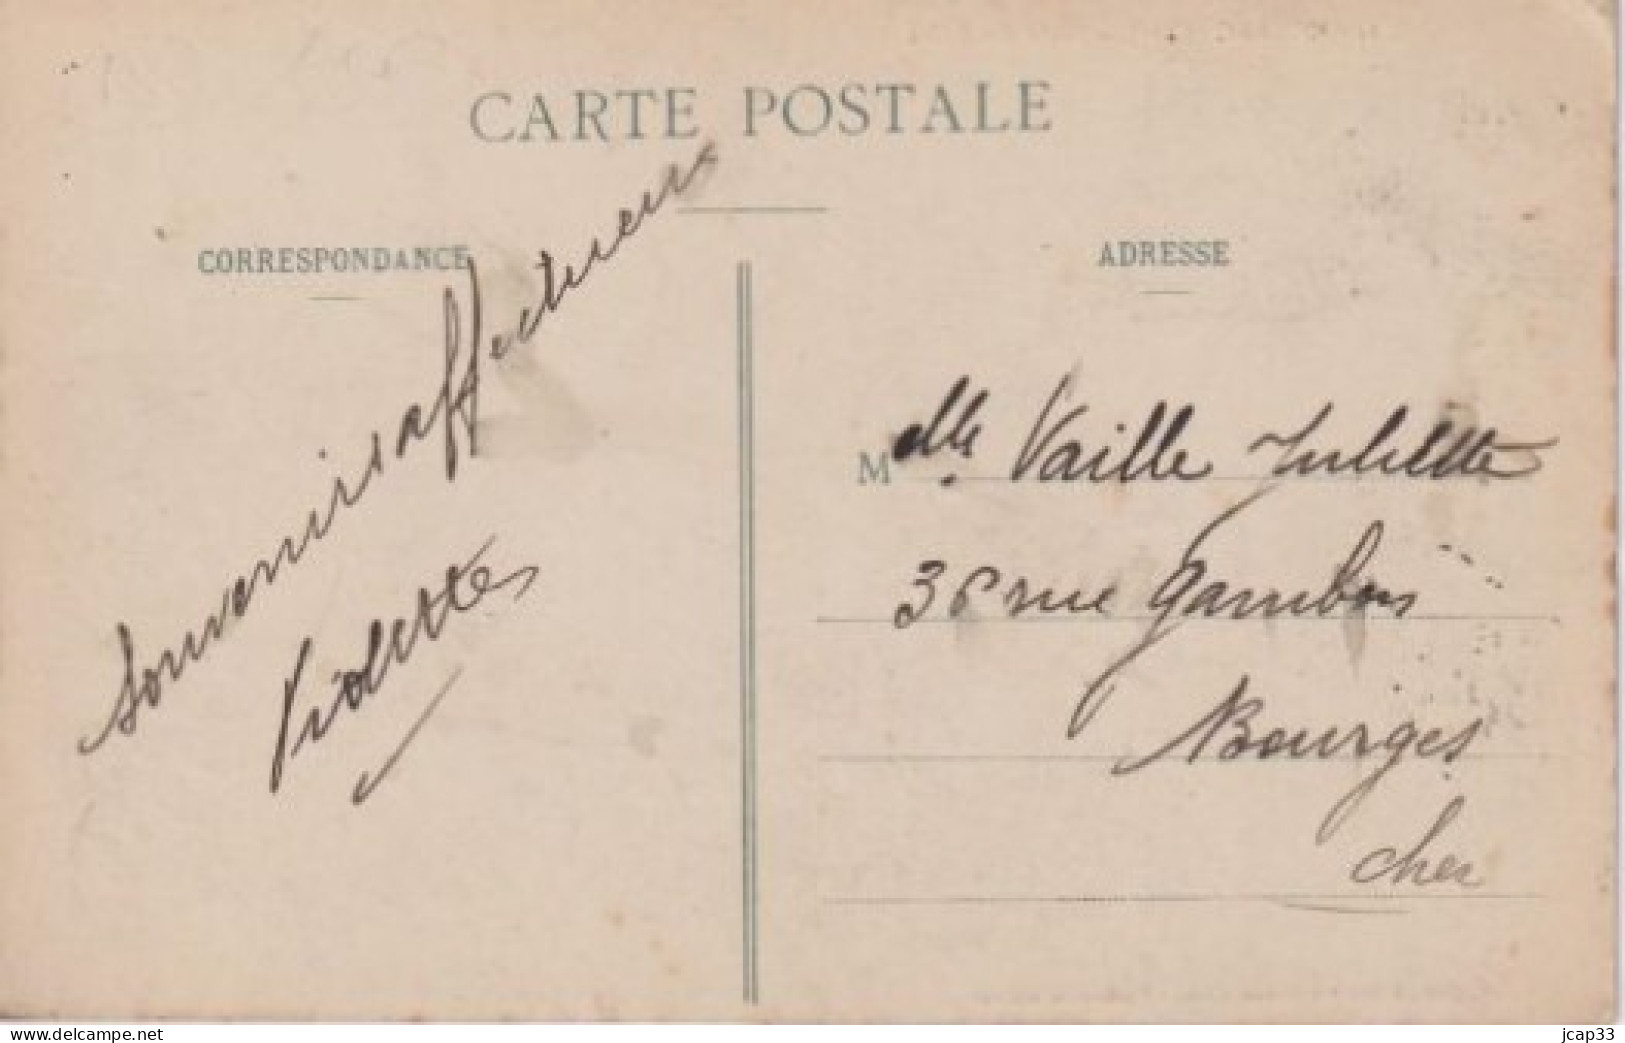 CARTE POSTALE
CORRESPONDANCE
ADRESSE
Souvenirs affectueux
Violette
Melle Vaille Juliette
36 rue Gambon
Bourges
Cher
www.delcampe.net
jcap33